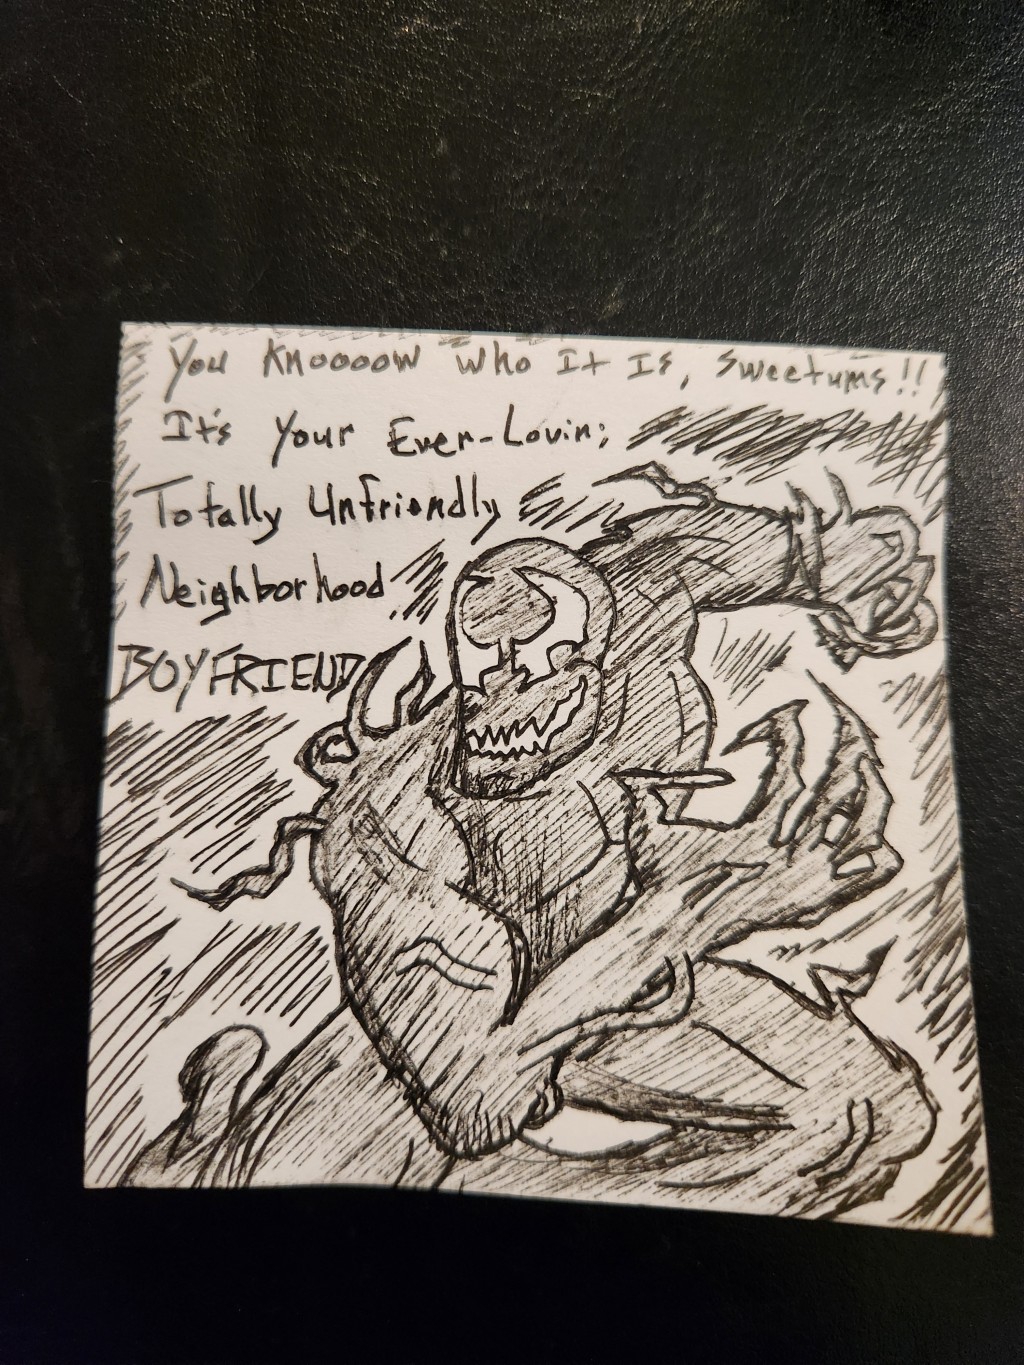 You Knoooow Who It Is, Sweetums!!
It's Your Ever-Lovin;
Totally Unfriendly
Neighborhood
BOYFRIEND